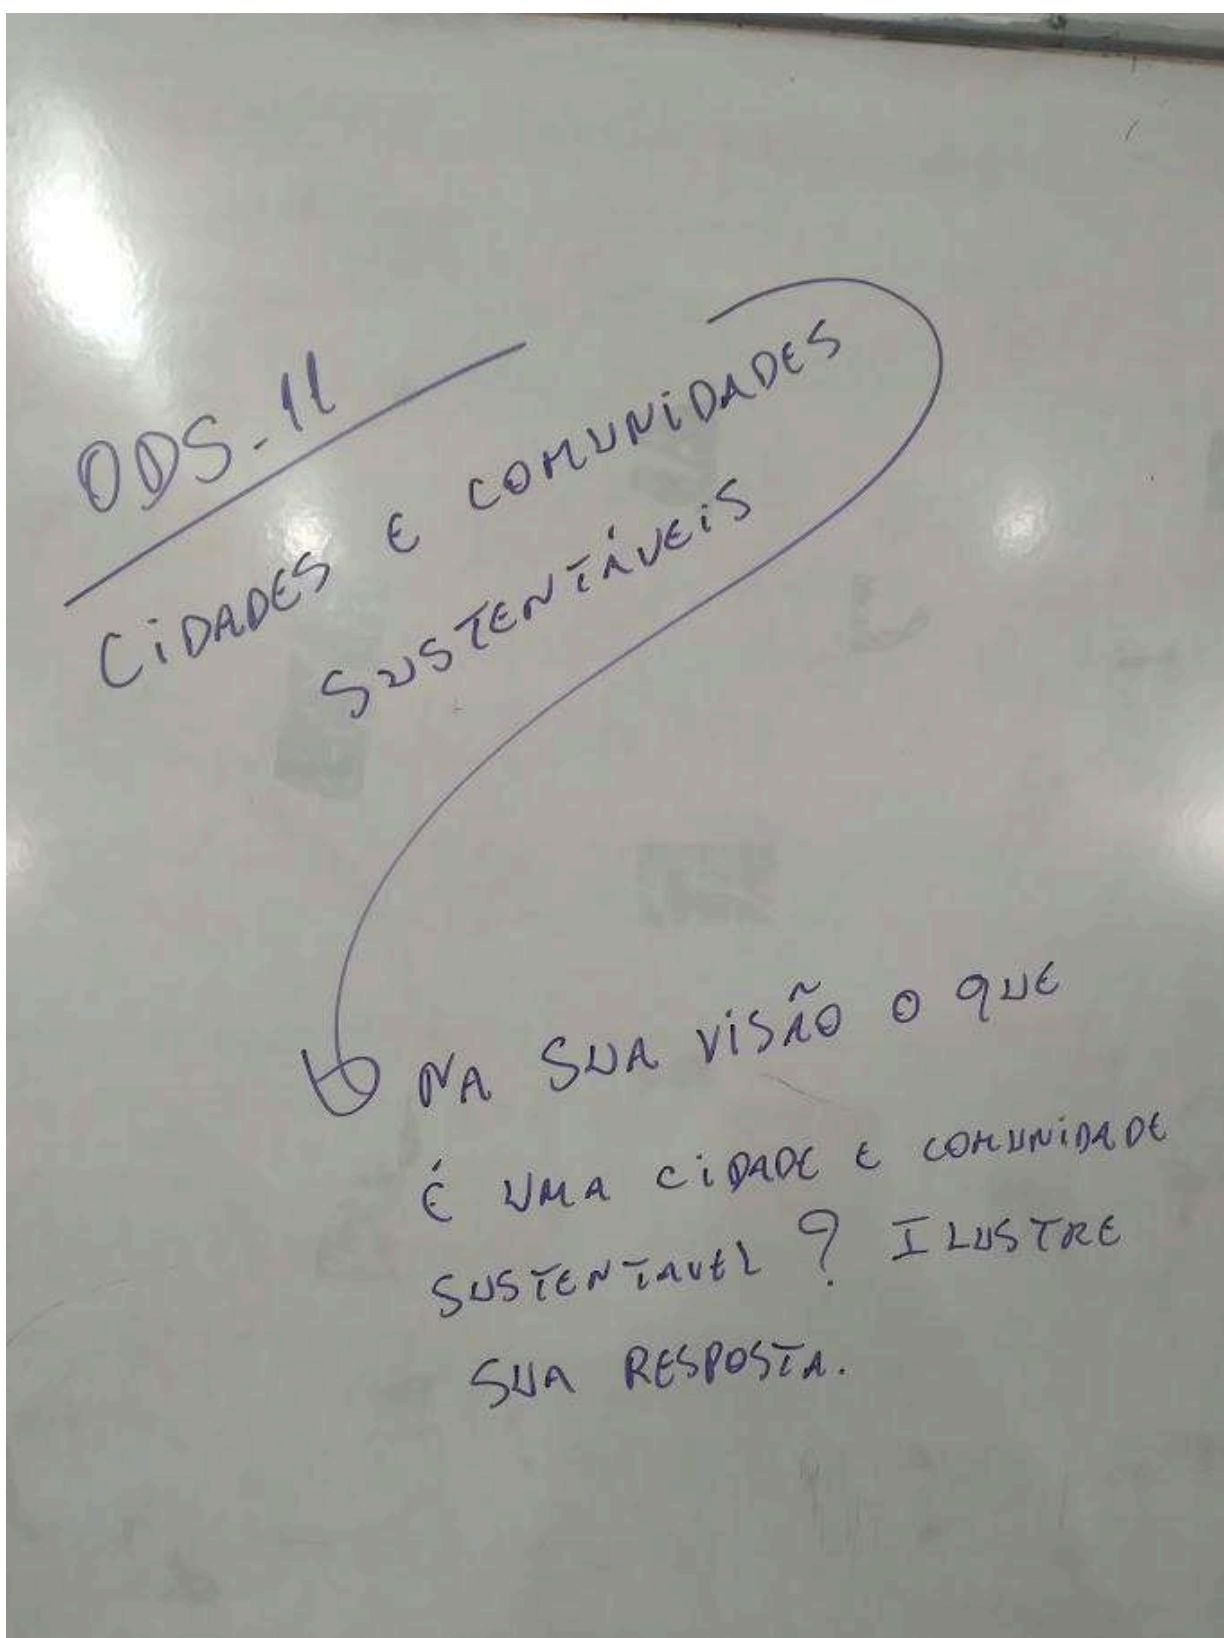 ODS-11
CIDADES E COMUNIDADES
SUSTENTÁVEIS
NA SUA VISÃO O QUE
É UMA CIDADE E COMUNIDADE
SUSTENTAVEL? ILUSTRE
SUA RESPOSTA.